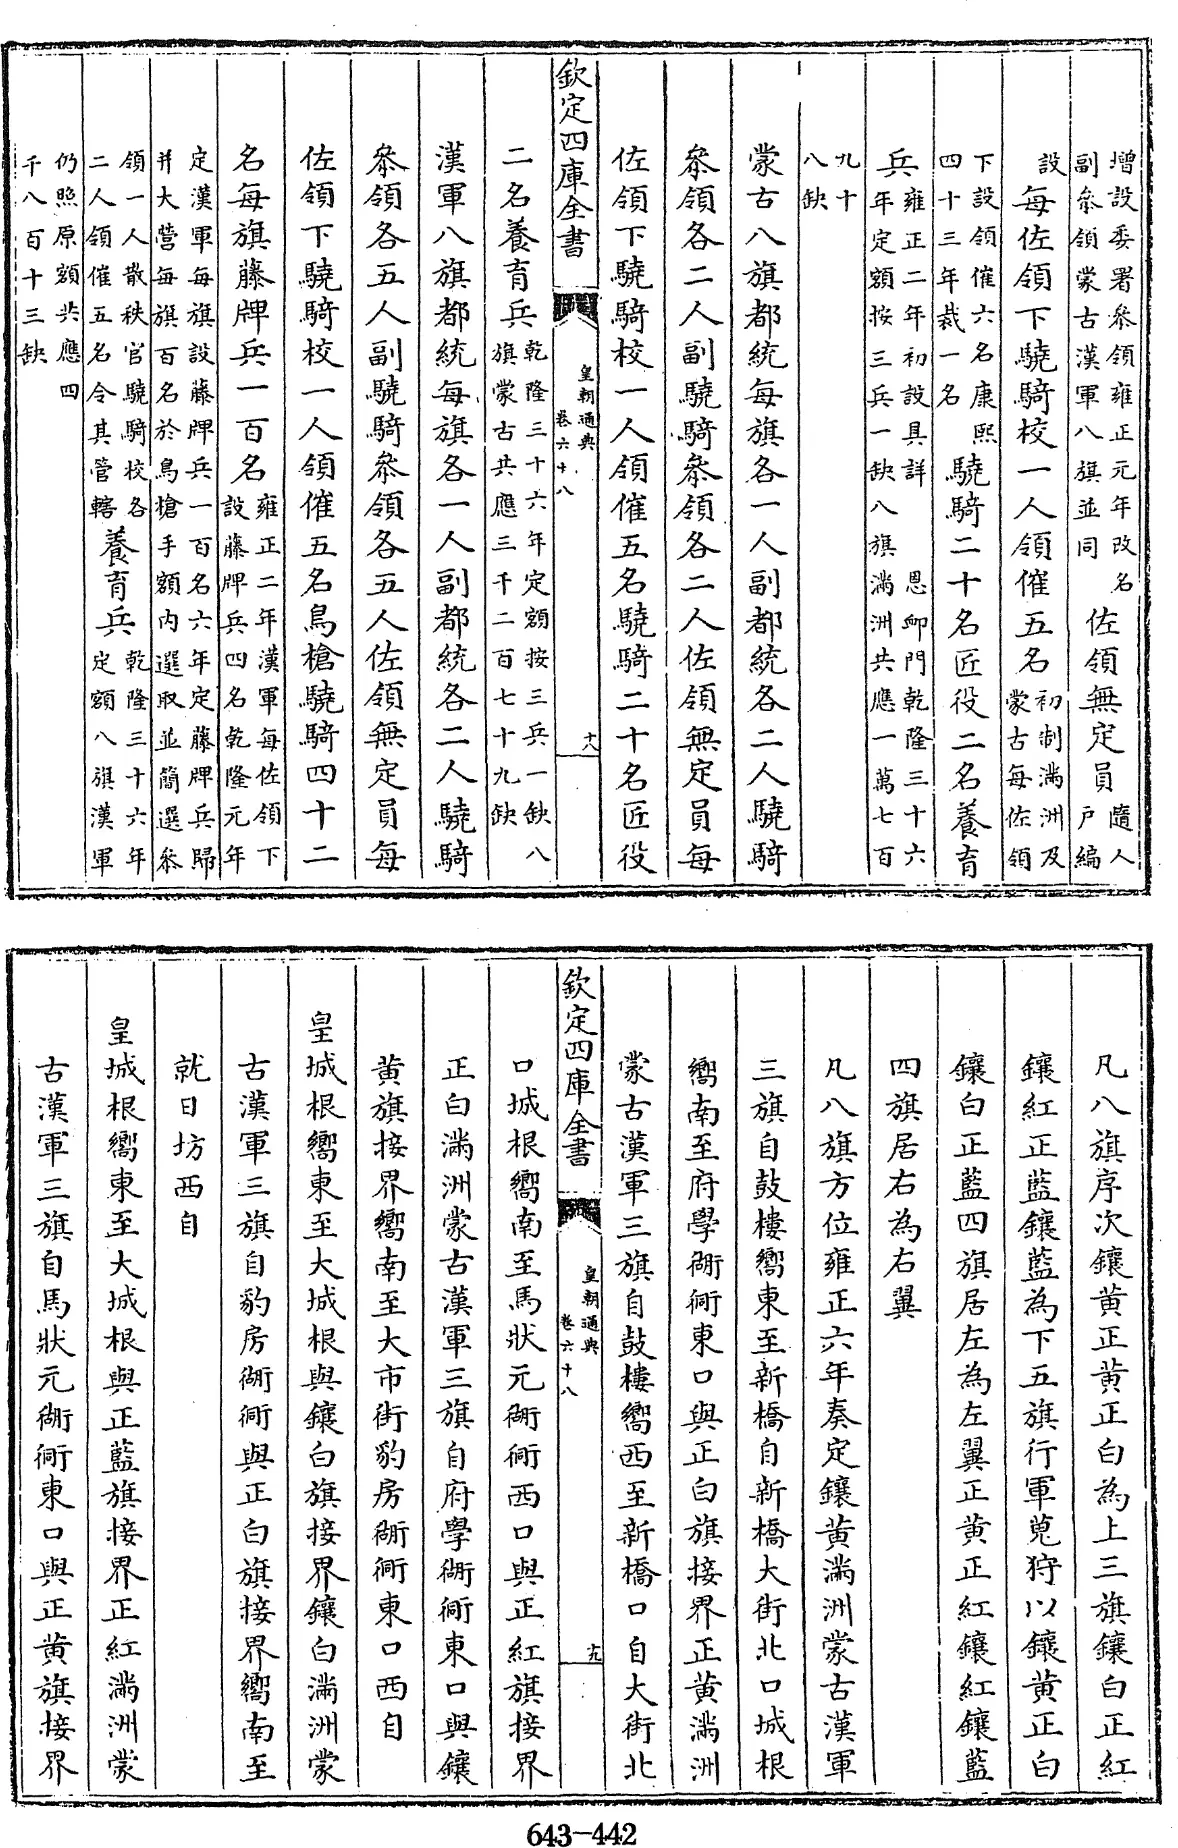 增設委署叅領雍正元年改名
副叅領蒙古漢軍八旗並同
佐領無定員
隨人
戶編
設
每佐領下驍騎校一人領催五名
初制滿洲及
蒙古每佐領
下設領催六名康熙
四十三年裁一名
驍騎二十名匠役二名養育
兵
雍正二年初設具詳 恩卹門乾隆三十六
年定額按三兵一缺八旗滿洲共應一萬七百
九十
八缺
蒙古八旗都統每旗各一人副都統各二人驍騎
叅領各二人副驍騎叅領各二人佐領無定員每
佐領下驍騎校一人領催五名驍騎二十名匠役
欽定四庫全書
皇朝通典
卷六十八
十八
二名養育兵
乾隆三十六年定額按三兵一缺八
旗蒙古共應三千二百七十九缺
漢軍八旗都統每旗各一人副都統各二人驍騎
叅領各五人副驍騎叅領各五人佐領無定員每
佐領下驍騎校一人領催五名鳥槍驍騎四十二
名每旗藤牌兵一百名
雍正二年漢軍每佐領下
設藤牌兵四名乾隆元年
定漢軍每旗設藤牌兵一百名六年定藤牌兵歸
并大營每旗百名於鳥槍手額内選取並簡選叅
領一人散秩官驍騎校各
二人領催五名令其管轄
養育兵
乾隆三十六年
定額八旗漢軍
仍照原額共應四
千八百十三缺
凡八旗序次鑲黄正黄正白為上三旗鑲白正紅
鑲紅正藍鑲藍為下五旗行軍蒐狩以鑲黄正白
鑲白正藍四旗居左為左翼正黄正紅鑲紅鑲藍
四旗居右為右翼
凡八旗方位雍正六年奏定鑲黄滿洲蒙古漢軍
三旗自鼓樓嚮東至新橋自新橋大街北口城根
嚮南至府學衚衕東口與正白旗接界正黄滿洲
蒙古漢軍三旗自鼓樓嚮西至新橋口自大街北
欽定四庫全書
皇朝通典
卷六十八
十九
口城根嚮南至馬狀元衚衕西口與正紅旗接界
正白滿洲蒙古漢軍三旗自府學衚衕東口與鑲
黄旗接界嚮南至大市街豹房衚衕東口西自
皇城根嚮東至大城根與鑲白旗接界鑲白滿洲蒙
古漢軍三旗自豹房衚衕與正白旗接界嚮南至
就日坊西自
皇城根嚮東至大城根與正藍旗接界正紅滿洲蒙
古漢軍三旗自馬狀元衚衕東口與正黄旗接界
643-442